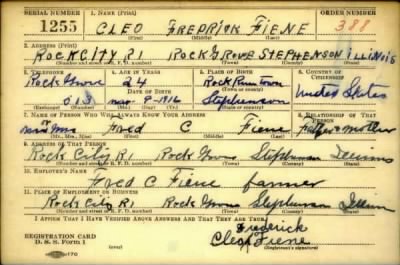 SERIAL NUMBER 1. NAME (Print) ORDER NUMBER
1255 CLEO FREDRICK FIENE 388
(First) (Middle) (Last)
2. ADDRESS (Print)
ROCK CITY R1 ROCK GROVE STEPHENSON ILLINOIS
(Number and street or R. F. D. number) (Town) (County) (State)
3. TELEPHONE 4. AGE IN YEARS 5. PLACE OF BIRTH 6. COUNTRY OF CITIZENSHIP
Rock Grove 24 Rock Run town
DATE OF BIRTH Stephenson United States
Mar 8-1916
(Exchange) (Number) (Mo.) (Day) (Yr.) (State or country)
7. NAME OF PERSON WHO WILL ALWAYS KNOW YOUR ADDRESS 8. RELATIONSHIP OF THAT PERSON
Fred C Fiene Father mother
(Mr., Mrs., Miss) (First) (Middle) (Last)
9. ADDRESS OF THAT PERSON
Rock City R1 Rock Grove Stephenson
(Number and street or R. F. D. number) (Town) (County) (State)
10. EMPLOYER'S NAME
Fred C Fiene farmer
11. PLACE OF EMPLOYMENT OR BUSINESS
Rock City R1 Rock Grove Stephenson
(Number and street or R. F. D. number) (Town) (County) (State)
I AFFIRM THAT I HAVE VERIFIED ABOVE ANSWERS AND THAT THEY ARE TRUE.
Frederick
REGISTRATION CARD Cleo Fiene
D. S. S. Form 1 (Registrant's signature)